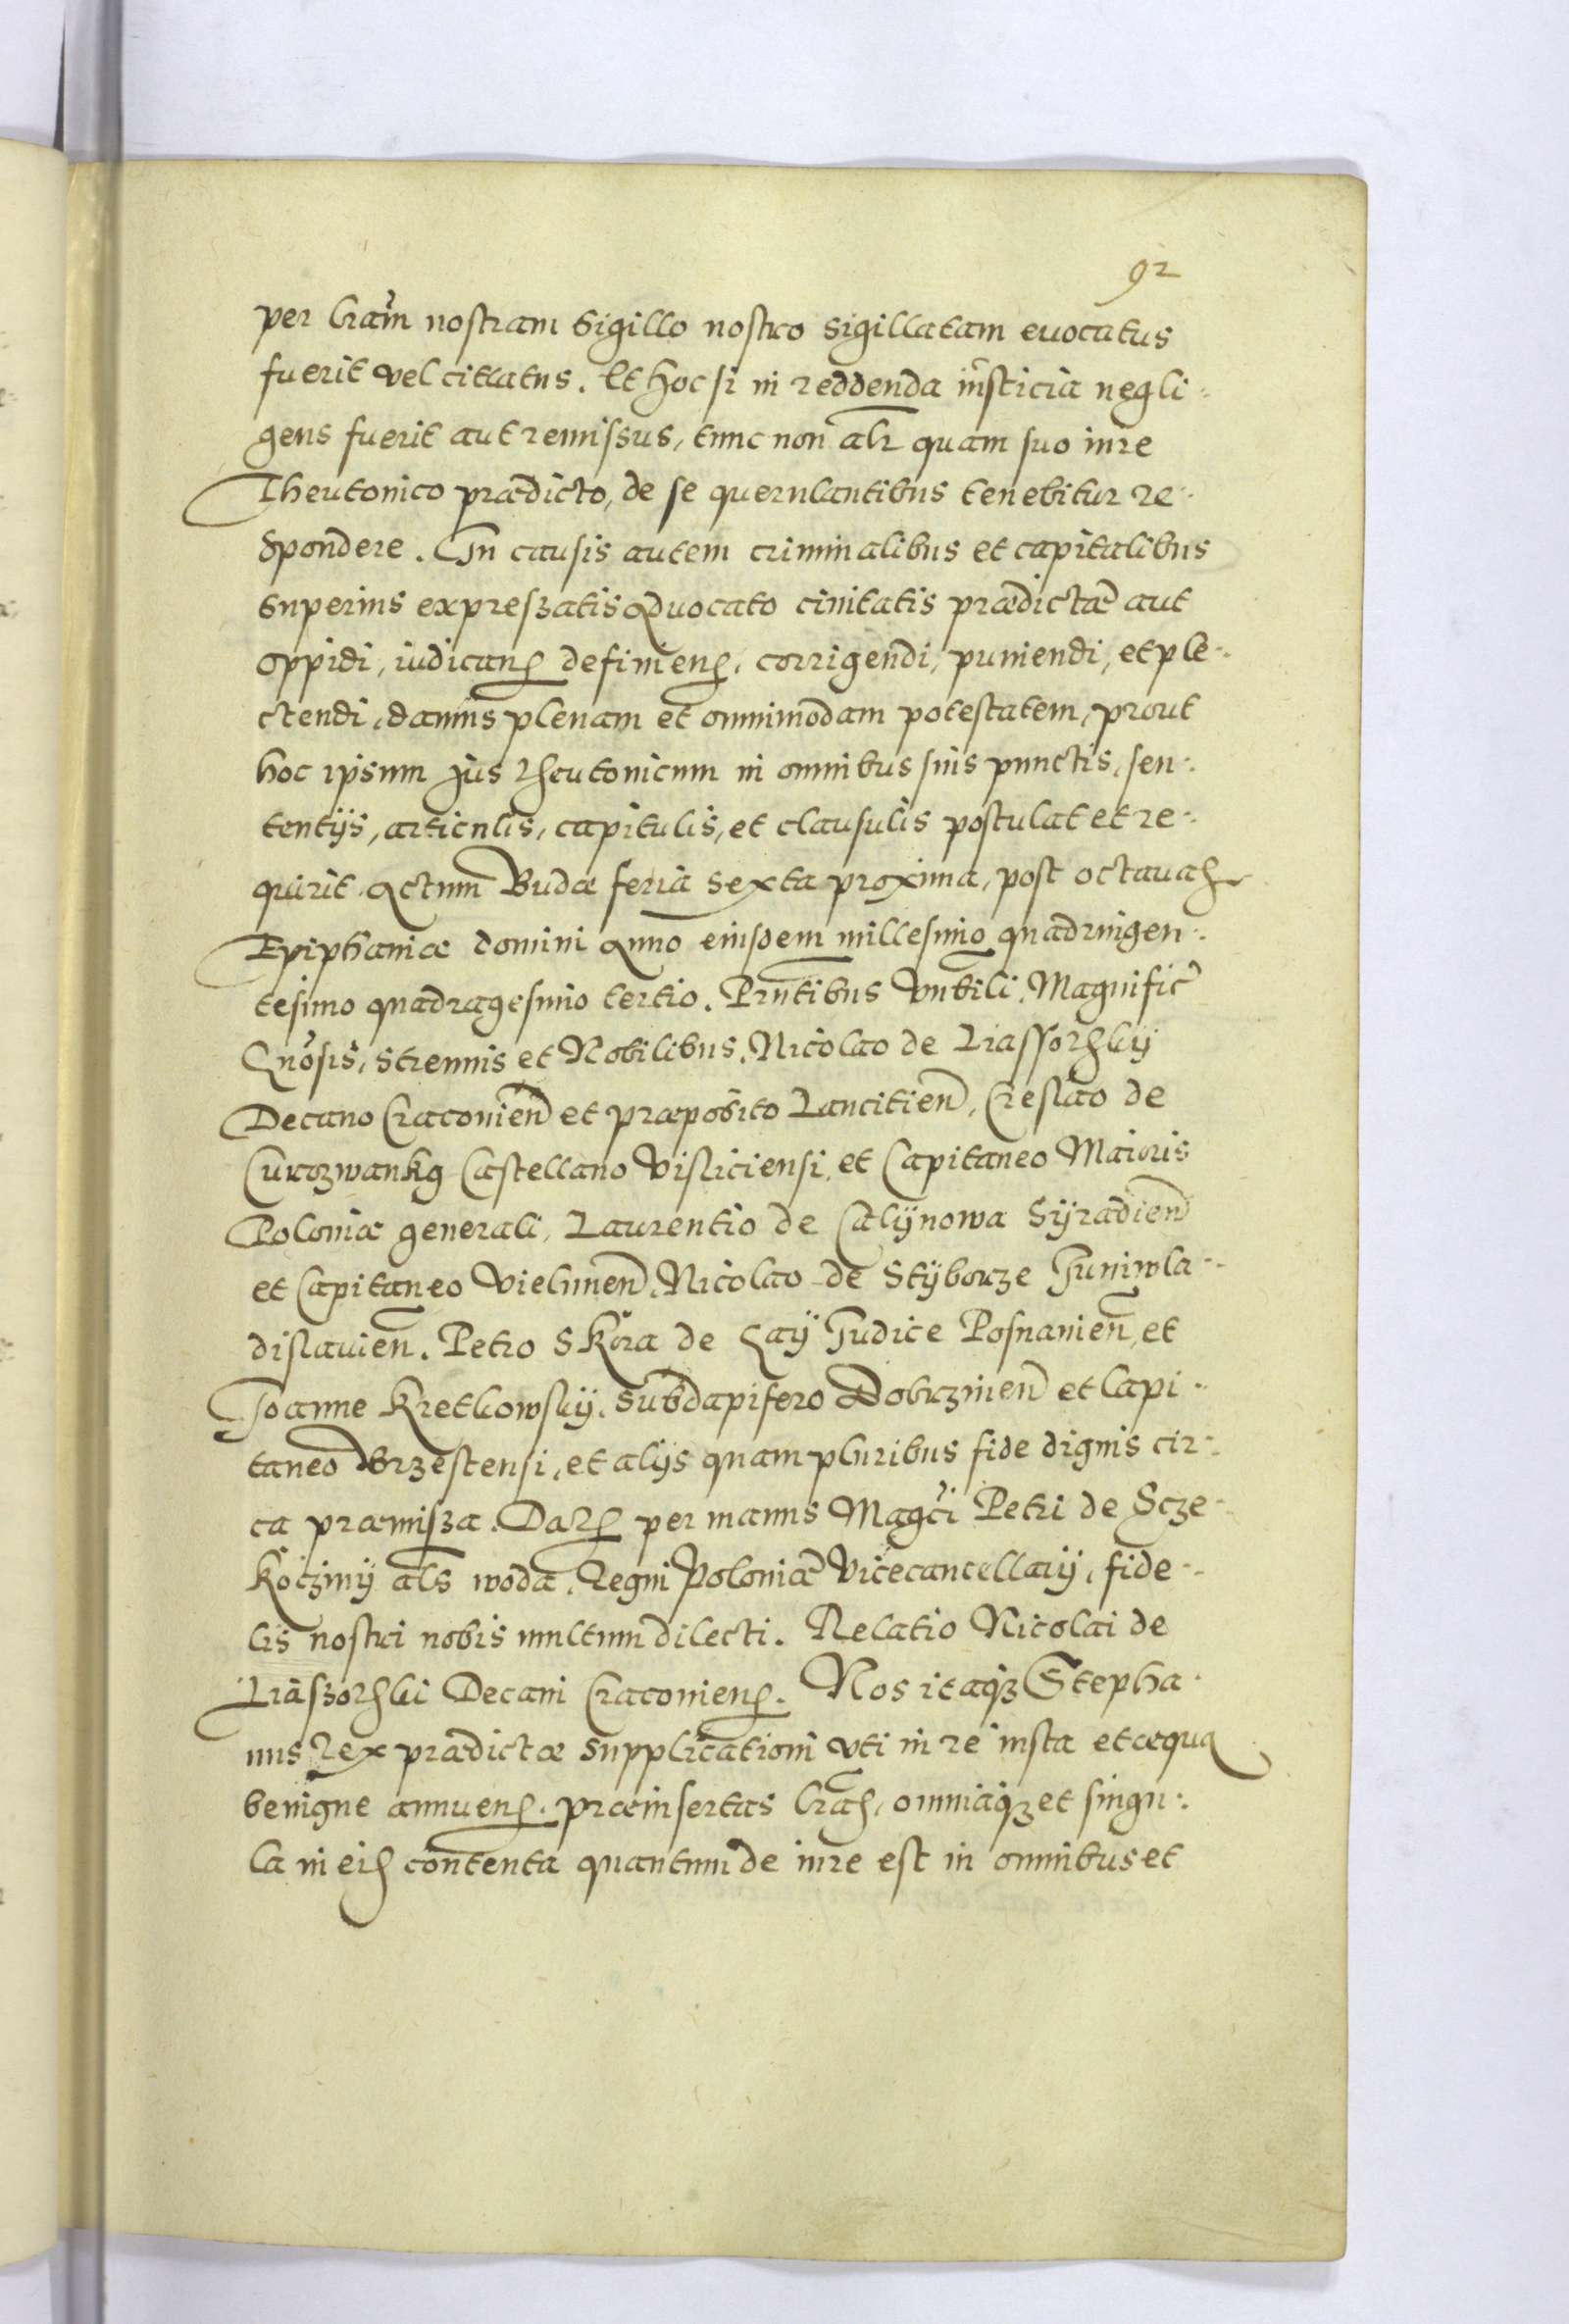 92
per lram nostram sigillo nostro sigillatam euocatus
fuerit vel citatus. Et hoc si in reddenda iusticia negli-
gens fuerit aut remissus, tunc non alr quam suo iure
Theutonico prædicto, de se querulantibus tenebitur re-
spondere. In causis autem criminalibus et capitalibus
superius expressatis Aduocato ciuitatis prædictæ aut
oppidi, iudicand definiend, corrigendi, puniendi, et ple-
ctendi, damus plenam et omnimodam potestatem, prout
hoc ipsum jus Theutonicum in omnibus suis punctis, sen-
tentijs, articulis, capitulis, et clausulis postulat et re-
quirit. Actum Budæ feria sexta proxima, post octauas
Epiphaniæ domini Anno eiusdem millesimo quadringen-
tesimo quadragesimo tertio. Prntibus Vnbili, Magnific
Gnosis, Strennis et Nobilibus, Nicolao de Liassorskij
Decano Cracouien et præposito Lancitien, Creslao de
Curozwankg Castellano Visliciensi, et Capitaneo Maioris
Poloniæ generali, Laurentio de Calijnowa Sijradien
et Capitaneo Vielunen, Nicolao de Stijborze Juniwla-
dislauien. Petro Skora de Gaij Judice Posnanien, et
Joanne Kretkowskij, Subdapifero Dobrzinen et Capi-
taneo Brzestensi, et alijs quam pluribus fide dignis cir-
ca præmissa. Dat per manus Magci Petri de Scze-
koczinij als woda, Regni Poloniæ Vicecancellarij, fide-
lis nostri nobis multum dilecti. Relatio Nicolai de
Liaszorski Decani Cracouiens. Nos itaqz Stepha-
nus Rex prædictæ supplicationi vti in re iusta et æqua
benigne annuens, præinsertas lras, omniaqz et singu-
la in eis contenta quantum de iure est in omnibus et